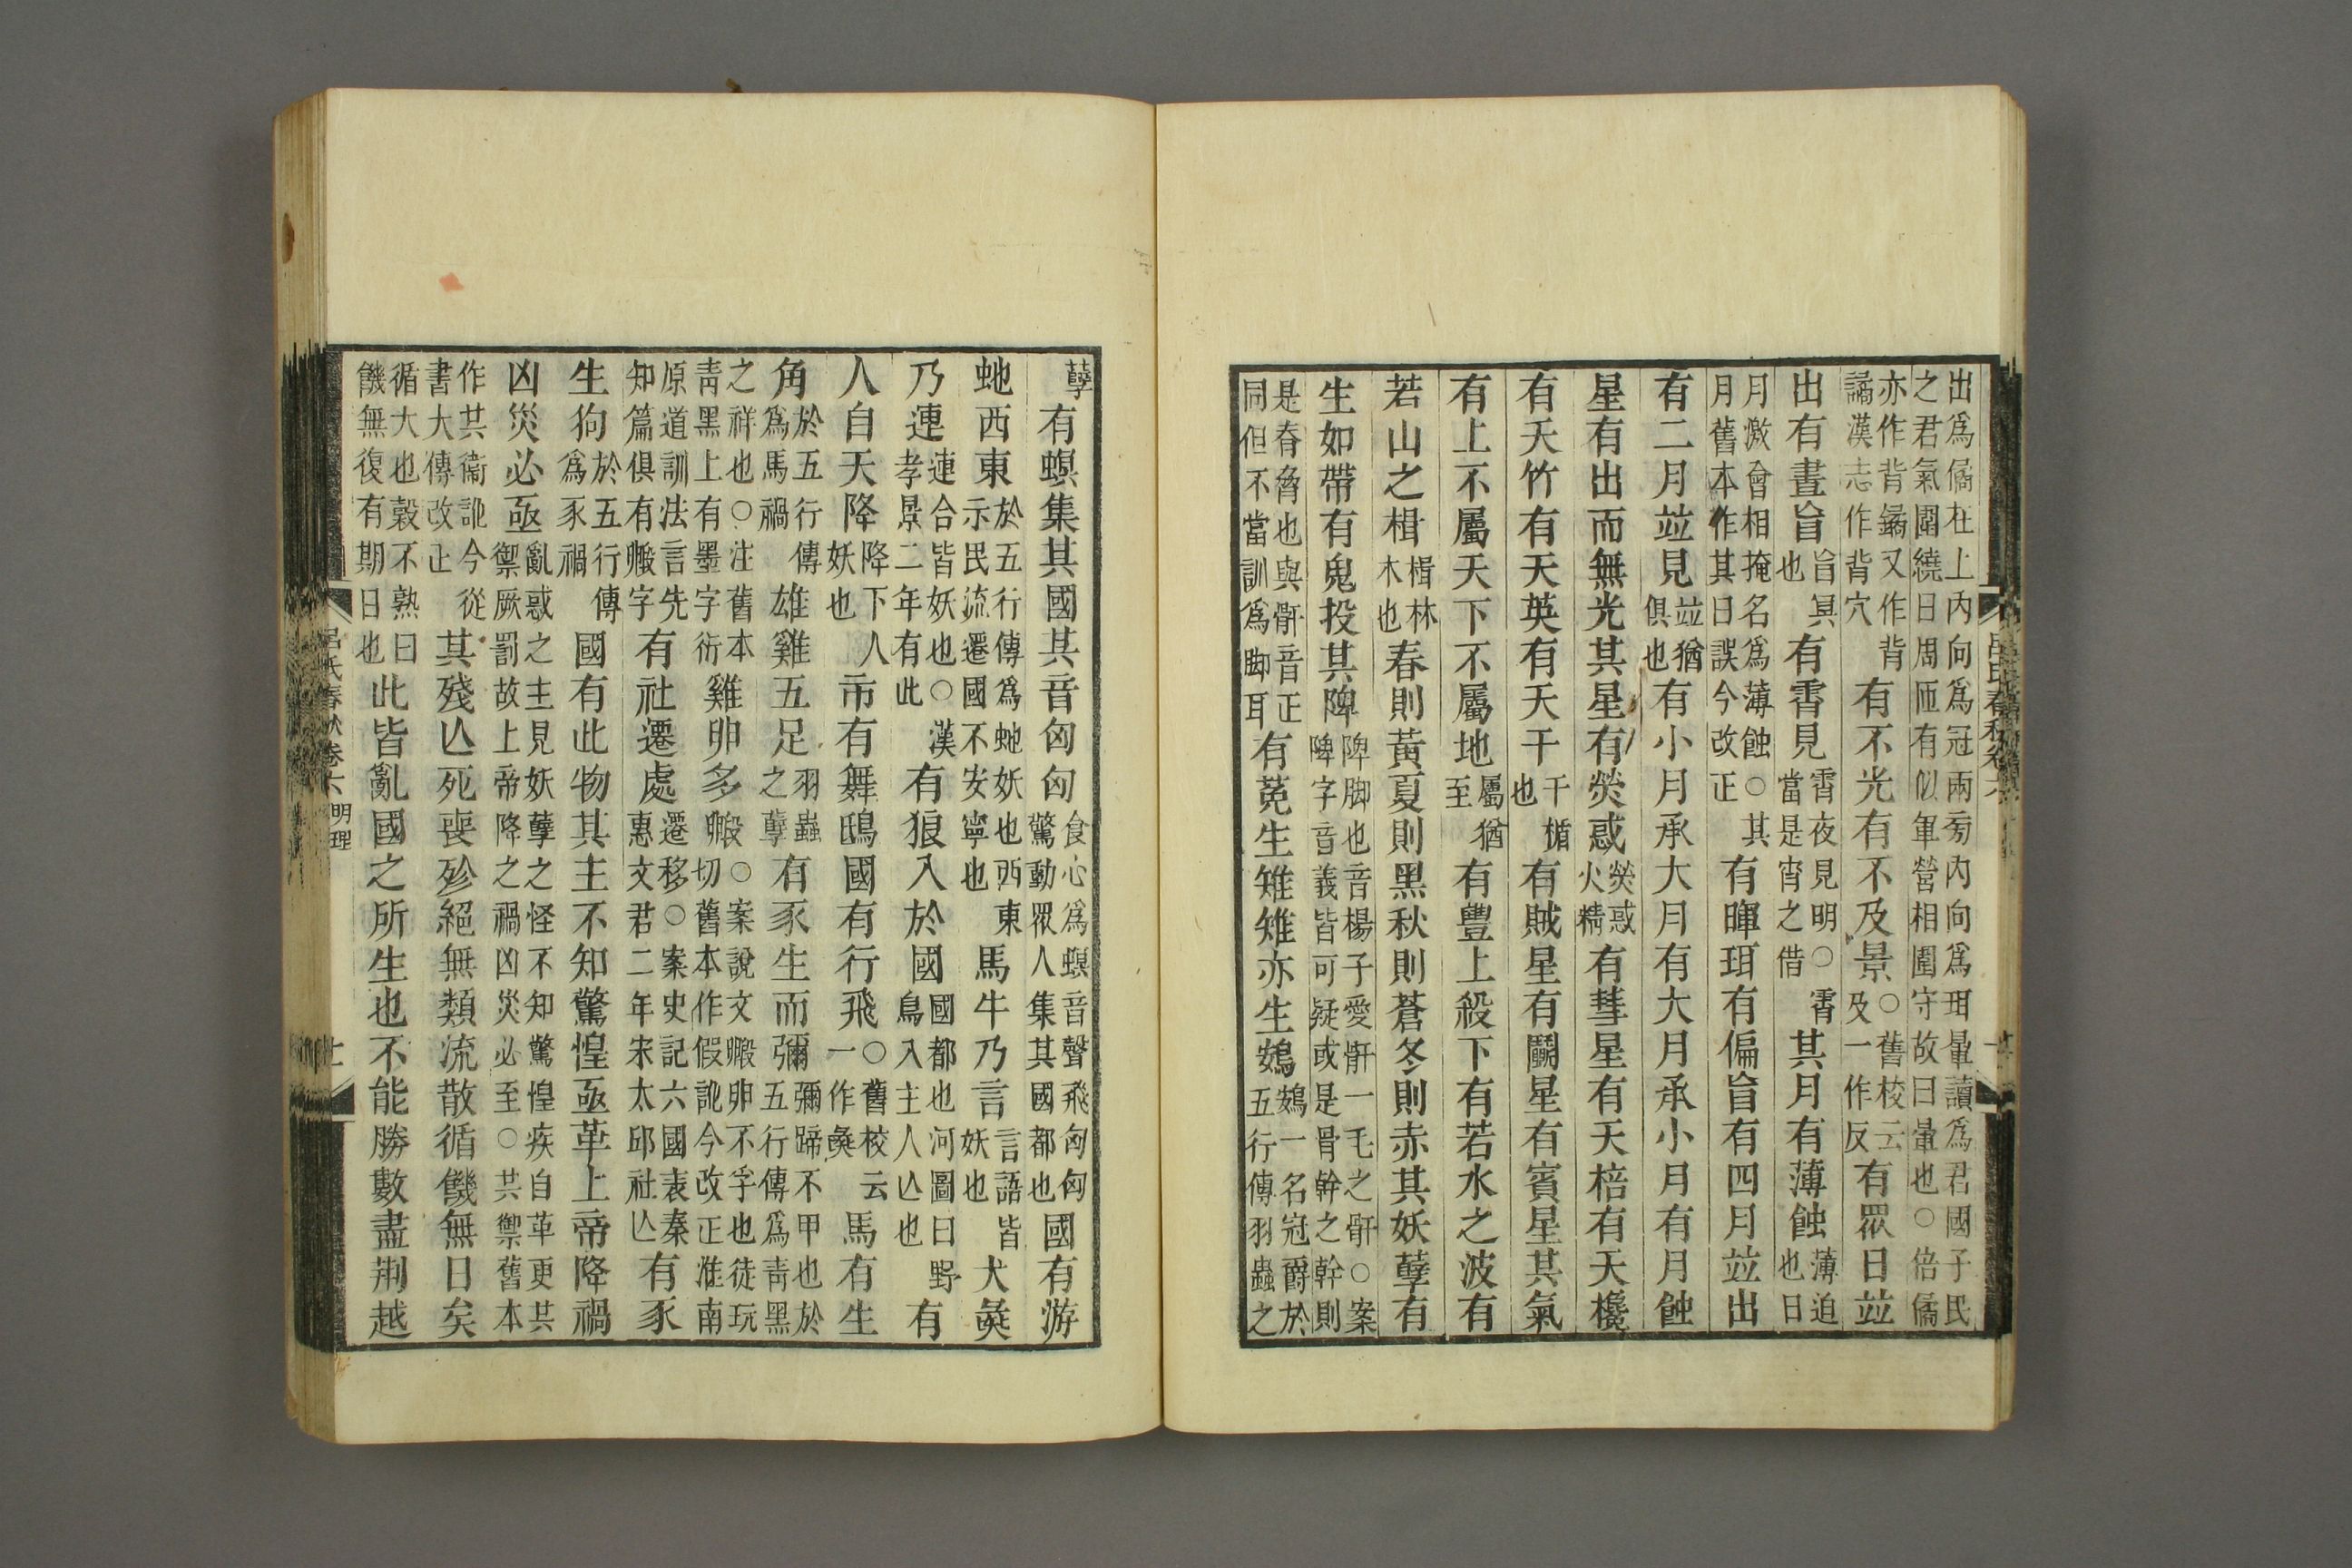 出爲僪在上內向爲冠兩㫄內向爲珥暈讀爲君國子民
之君氣圍繞日周匝有似軍營相圍守故曰暈也○倍僪
亦作背鐍又作背
譎漢志作背穴
有不光有不及景○舊校云
及一作反
有眾日竝
出有晝盲盲冥
也
有霄見霄夜見明○霄
當是宵之借
其月有薄蝕薄迫
也日
月激會相掩名爲薄蝕○其
月舊本作其日誤今改正
有暉珥有偏盲有四月竝出
有二月竝見竝猶
俱也
有小月承大月有大月承小月有月蝕
星有出而無光其星有熒惑熒惑
火精
有彗星有天棓有天欃
有天竹有天英有天干干楯
也
有賊星有鬬星有賓星其氣
有上不屬天下不屬地屬猶
至
有豐上殺下有若水之波有
若山之楫楫林
木也
春則黃夏則黑秋則蒼冬則赤其妖孽有
生如帶有鬼投其陴陴脚也音楊子愛骭一毛之骭○案
陴字音義皆可疑或是骨幹之幹則
是脊脅也與骭音正
同但不當訓爲脚耳
有菟生雉雉亦生鴳鴳一名冠爵於
五行傳羽蟲之
孽
有螟集其國其音匈匈食心爲螟音聲飛匈匈
驚動眾人集其國都也
國有游
虵西東於五行傳爲虵妖也西東
示民流遷國不安寧也
馬牛乃言言語皆
妖也
犬彘
乃連連合皆妖也○漢
孝景二年有此
有狼入於國國都也河圖曰野
鳥入主人亾也
有
人自天降降下人
妖也
市有舞鴟國有行飛○舊校云
一作彘
馬有生
角於五行傳
爲馬禍
雄雞五足羽蟲
之孽
有豕生而彌彌蹄不甲也於
五行傳爲青黑
之祥也○注舊本
青黑上有墨字衍
雞卵多毈毈○案說文毈卵不孚也徒玩
切舊本作假訛今改正淮南
原道訓法言先
知篇俱有毈字
有社遷處遷移○案史記六國表秦
惠文君二年宋太邱社亾
有豕
生狗於五行傳
爲豕禍
國有此物其主不知驚惶亟革上帝降禍
凶災必亟亂惑之主見妖孽之怪不知驚惶疾自革更其
禦厥罰故上帝降之禍凶災必至○共禦舊本
作其衞訛今從
書大傳改正
其殘亾死喪殄絕無類流散循饑無日矣
循大也穀不熟曰
饑無復有期日也
此皆亂國之所生也不能勝數盡荆越
呂氏春秋卷六 明理